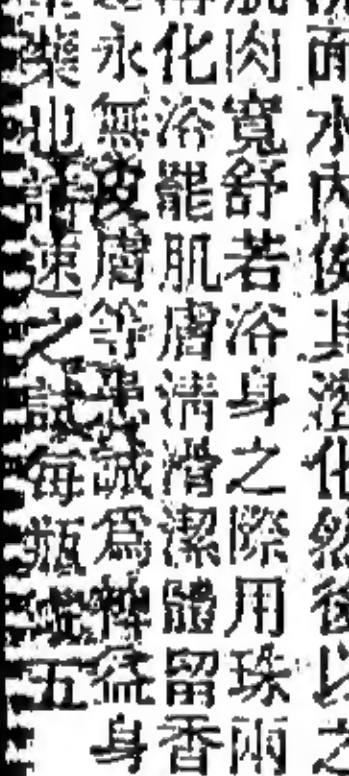 面水內俟其溶化然後以之
肉寬舒若浴身之際用珠兩
化浴罷肌膚清滑潔體留香
永無皮膚等患誠為裨益身
藥也請速之試每瓶 五